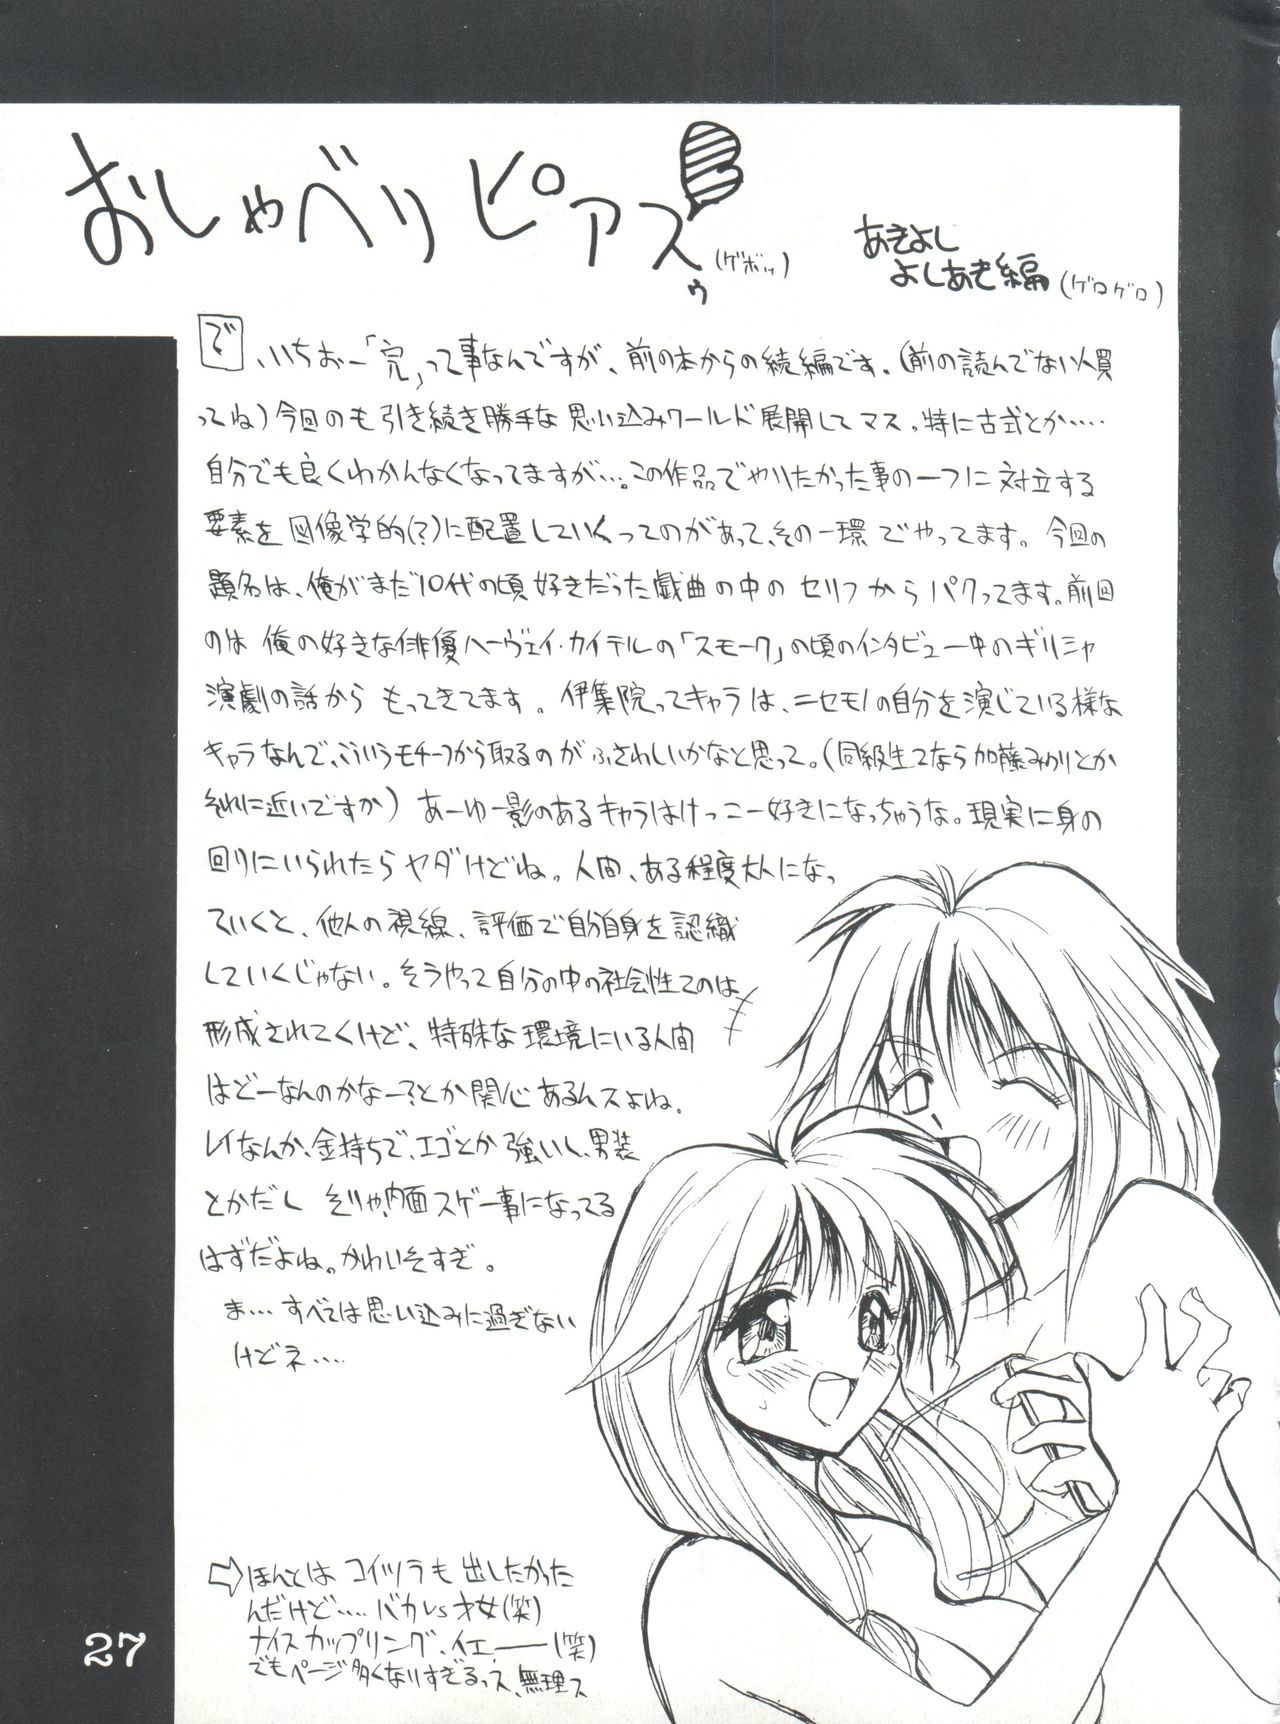 おしゃべりピアスゥ(ゲボッ)
あきよし
よしあき編(ゲロゲロ)
で、いちおー「完」って事なんですが、前の本からの続編です。(前の読んでない人買
ってね)今回のも引き続き勝手な思い込みワールド展開してマス。特に古式とか‥‥‥
自分でも良くわかんなくなってますが…。この作品でやりたかった事の一つに対立する
要素を図像学的(?)に配置していくってのがあって、その一環でやってます。今回の
題名は、俺がまだ10代の頃好きだった戯曲の中のセリフからパクってます。前回
のは俺の好きな俳優ハーヴェイ・カイテルの「スモーク」の頃のインタビュー中のギリシャ
演劇の話からもってきてます。伊集院ってキャラは、ニセモノの自分を演じている様な
キャラなんで、こういうモチーフから取るのがふさわしいかなと思って。(同級生2なら加藤みのりとか
それに近いですか)あーゆー影のあるキャラはけっこー好きになっちゃうな。現実に身の
回りにいられたらヤダけどね。人間、ある程度大人になっ
ていくと、他人の視線、評価で自分自身を認識
していくじゃない。そうやって自分の中の社会性てのは
形成されてくけど、特殊な環境にいる人間
はどーなんのかなー?とか関心あるんスよね。
レイなんか、金持ちで、エゴとか強いし、男装
とかだし そりゃ内面スゲー事になってる
はずだよね。かわいそすぎ。
ま…すべては思い込みに過ぎない
けどネ‥‥
⇨ほんとはコイツラも出したかった
んだけど‥‥バカvs才女(笑)
ナイスカップリング、イエー――(笑)
でもページ多くなりすぎるっス、無理ス
27